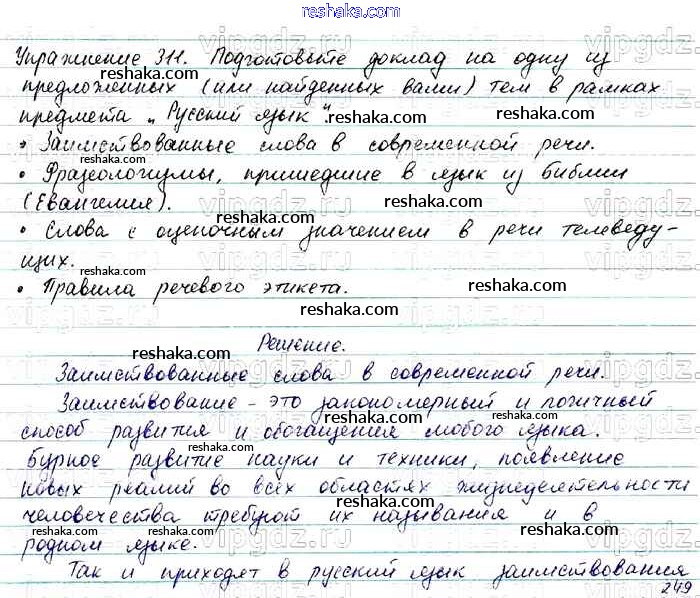 reshaka.com
Упражнение 311. Подготовьте доклад на одну из
предложенных (или найденных вами) тем в рамках
предмета "Русский язык".
• Заимствованные слова в современной речи.
• Фразеологизмы, пришедшие в язык из библии
(Евангелия).
• Слова с оценочным значением в речи телеведу-
щих.
• Правила речевого этикета.
Решение.
Заимствованные слова в современной речи.
Заимствование - это закономерный и логичный
способ развития и обогащения любого языка.
Бурное развитие науки и техники, появление
новых реалий во всех областях жизнедеятельности
человечества требуют их называния и в
родном языке.
Так и приходят в русский язык заимствования
249